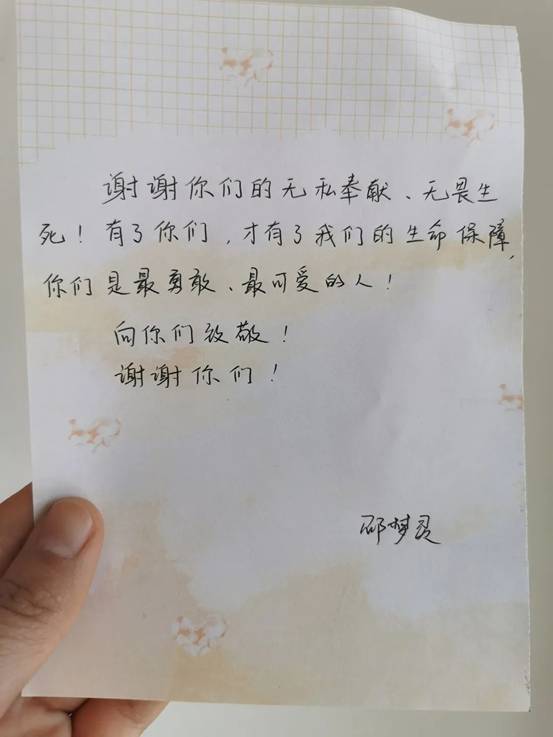 谢谢你们的无私奉献、无畏生
死！有了你们，才有了我们的生命保障，
你们是最勇敢、最可爱的人！
向你们致敬！
谢谢你们！
邵梦灵